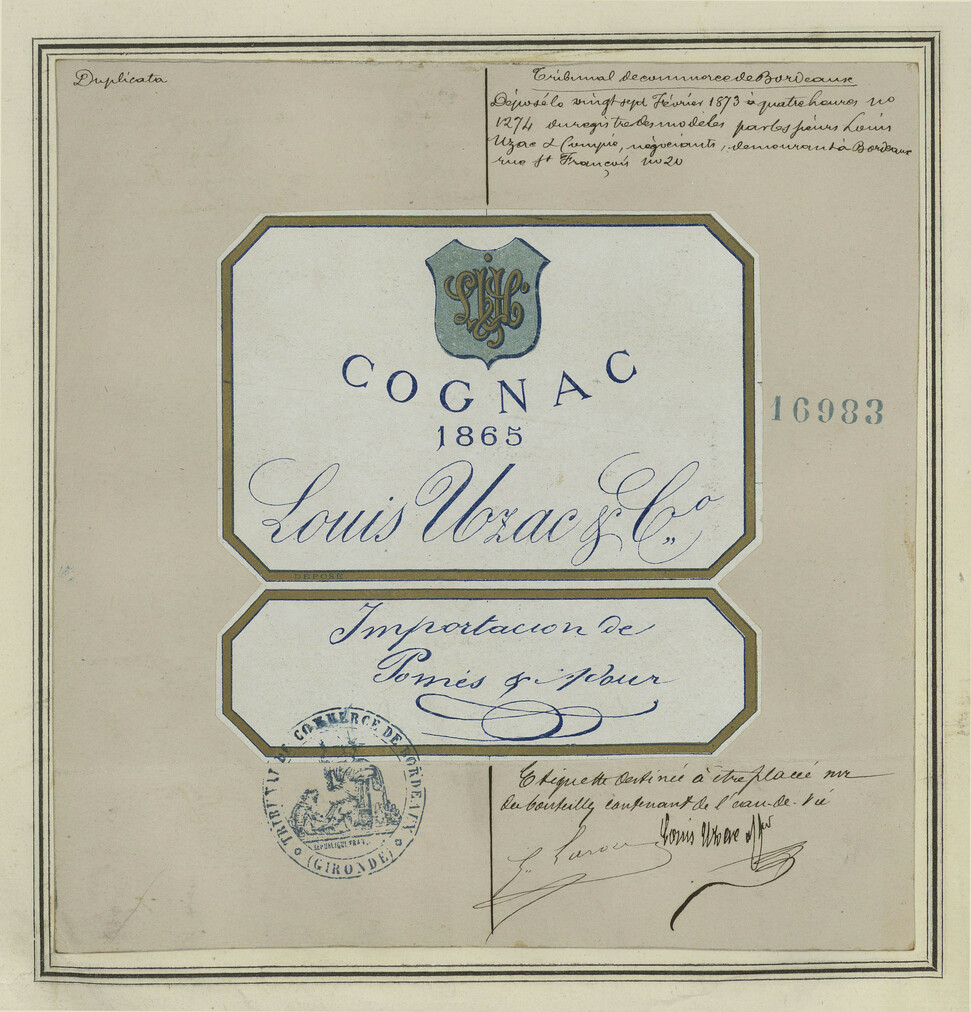 Duplicata
Tribunal de commerce de Bordeaux
Déposé le vingt sept Février 1873 à quatre heures no
1274 du registre des modèles par les sieurs Louis
Uzac & Compie, négociants, demeurant à Bordeaux
rue St François no 20
COGNAC
1865
Louis Uzac & Co
DEPOSE
16983
Importacion de
Pomés &
TRIBUNAL DE COMMERCE DE BORDEAUX
REPUBLIQUE FRA
(GIRONDE)
Etiquette destinée à être placée sur
des bouteilles contenant de l'eau-de-vie
Louis Uzac &